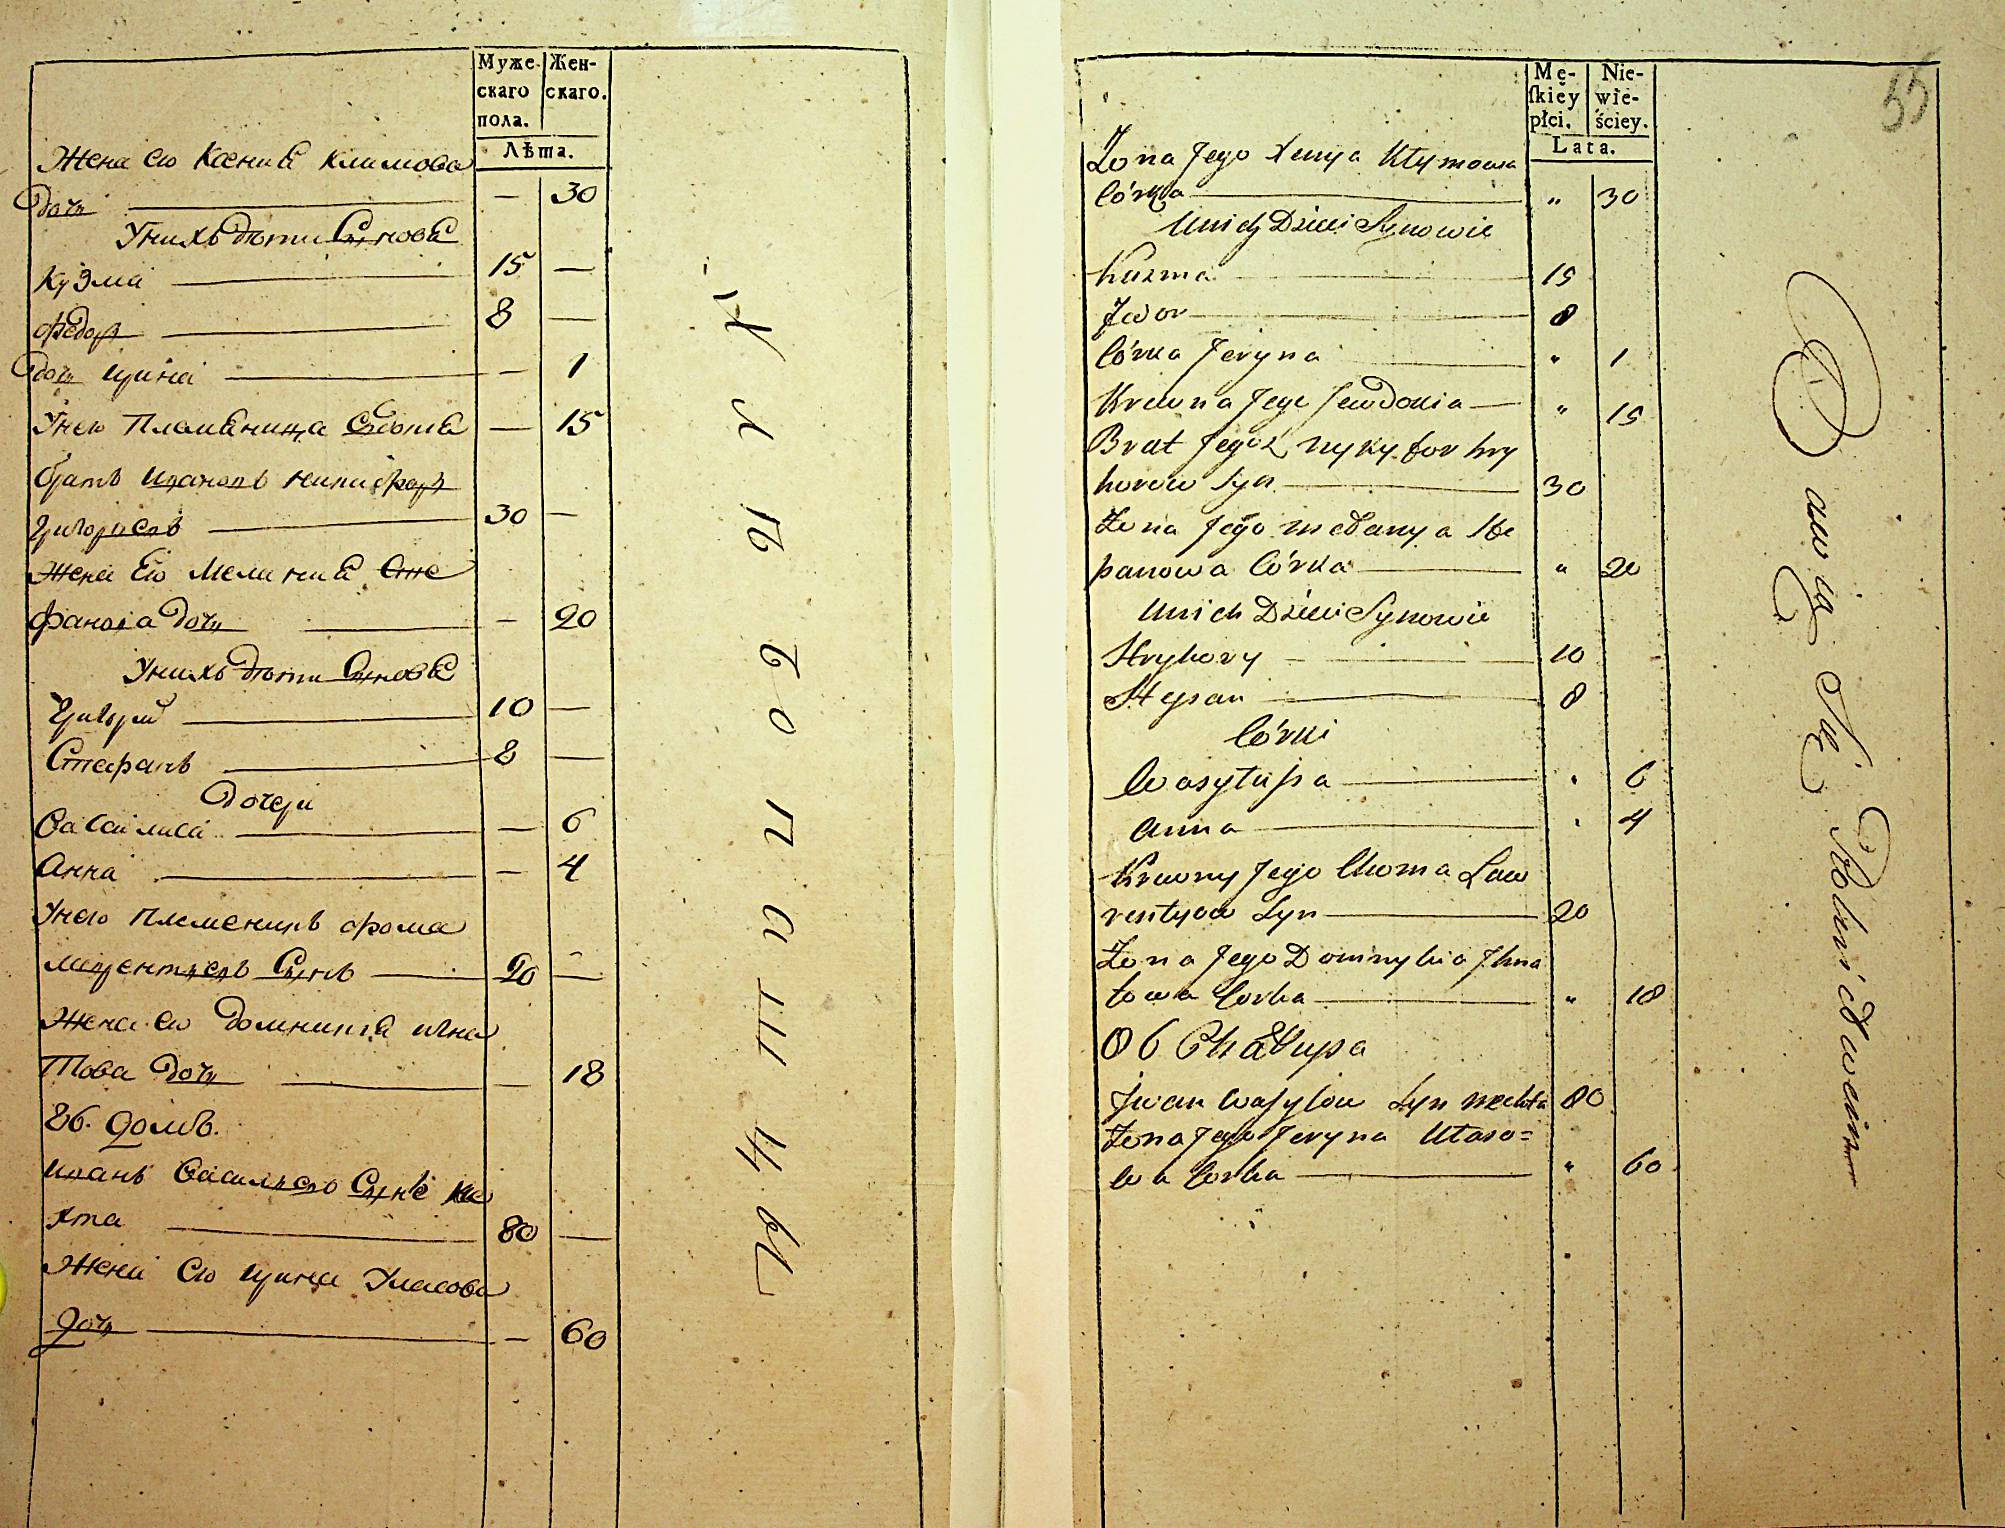 Муже-
скаго
пола.
Жен-
скаго.
Лѣта.
Жена ево Ксения Климова
дочь — 30
У нихъ дѣти Сыновя
Кузма 15 —
Федоръ 8 —
дочь Ирина — 1
У нево Племяница Евдотя — 15
братъ Ивановъ Никифоръ
Григорьевъ 30 —
Жена Ево Мелания Сте
фанова дочь — 20
У нихъ дѣти Сыновя
Григорий 10 —
Стефанъ 8 —
Дочери
Васились — 6
Анна — 4
У нево племеникъ Фома
Сынъ 20 —
Жена ево Домникия Игна
това дочь — 18
86. домъ.
Иванъ Васильевъ Сынъ Не
хта 80 —
Жена Ево Ирина Уласова
дочь — 60
Mę-
ſkiey
płci.
Nie-
wie-
ściey.
Lata.
55
Żona Jego Xenya Kłymowa
Córka „ 30
U nich Dzieci Synowie
Kuzma 15
Fedor 8
Córka Jeryna „ 1
Krewna Jego Jewdokia „ 15
Brat Jegoż Nykyfor Hry
horow Syn 30
Żona Jego Mełanya Ste
panowa Córka „ 20
U nich Dzieci Synowie
Hryhory 10
Stepan 8
Córki
Wasylisa „ 6
Anna „ 4
Krewny Jego Choma Law
rentyow Syn 20
Żona Jego Dominykia Ihna
towa Corka „ 18
86 Chałupa
Jwan Wasylow Syn Nechta 80
Żona Jego Jeryna Ułaso=
wa Corka „ 60